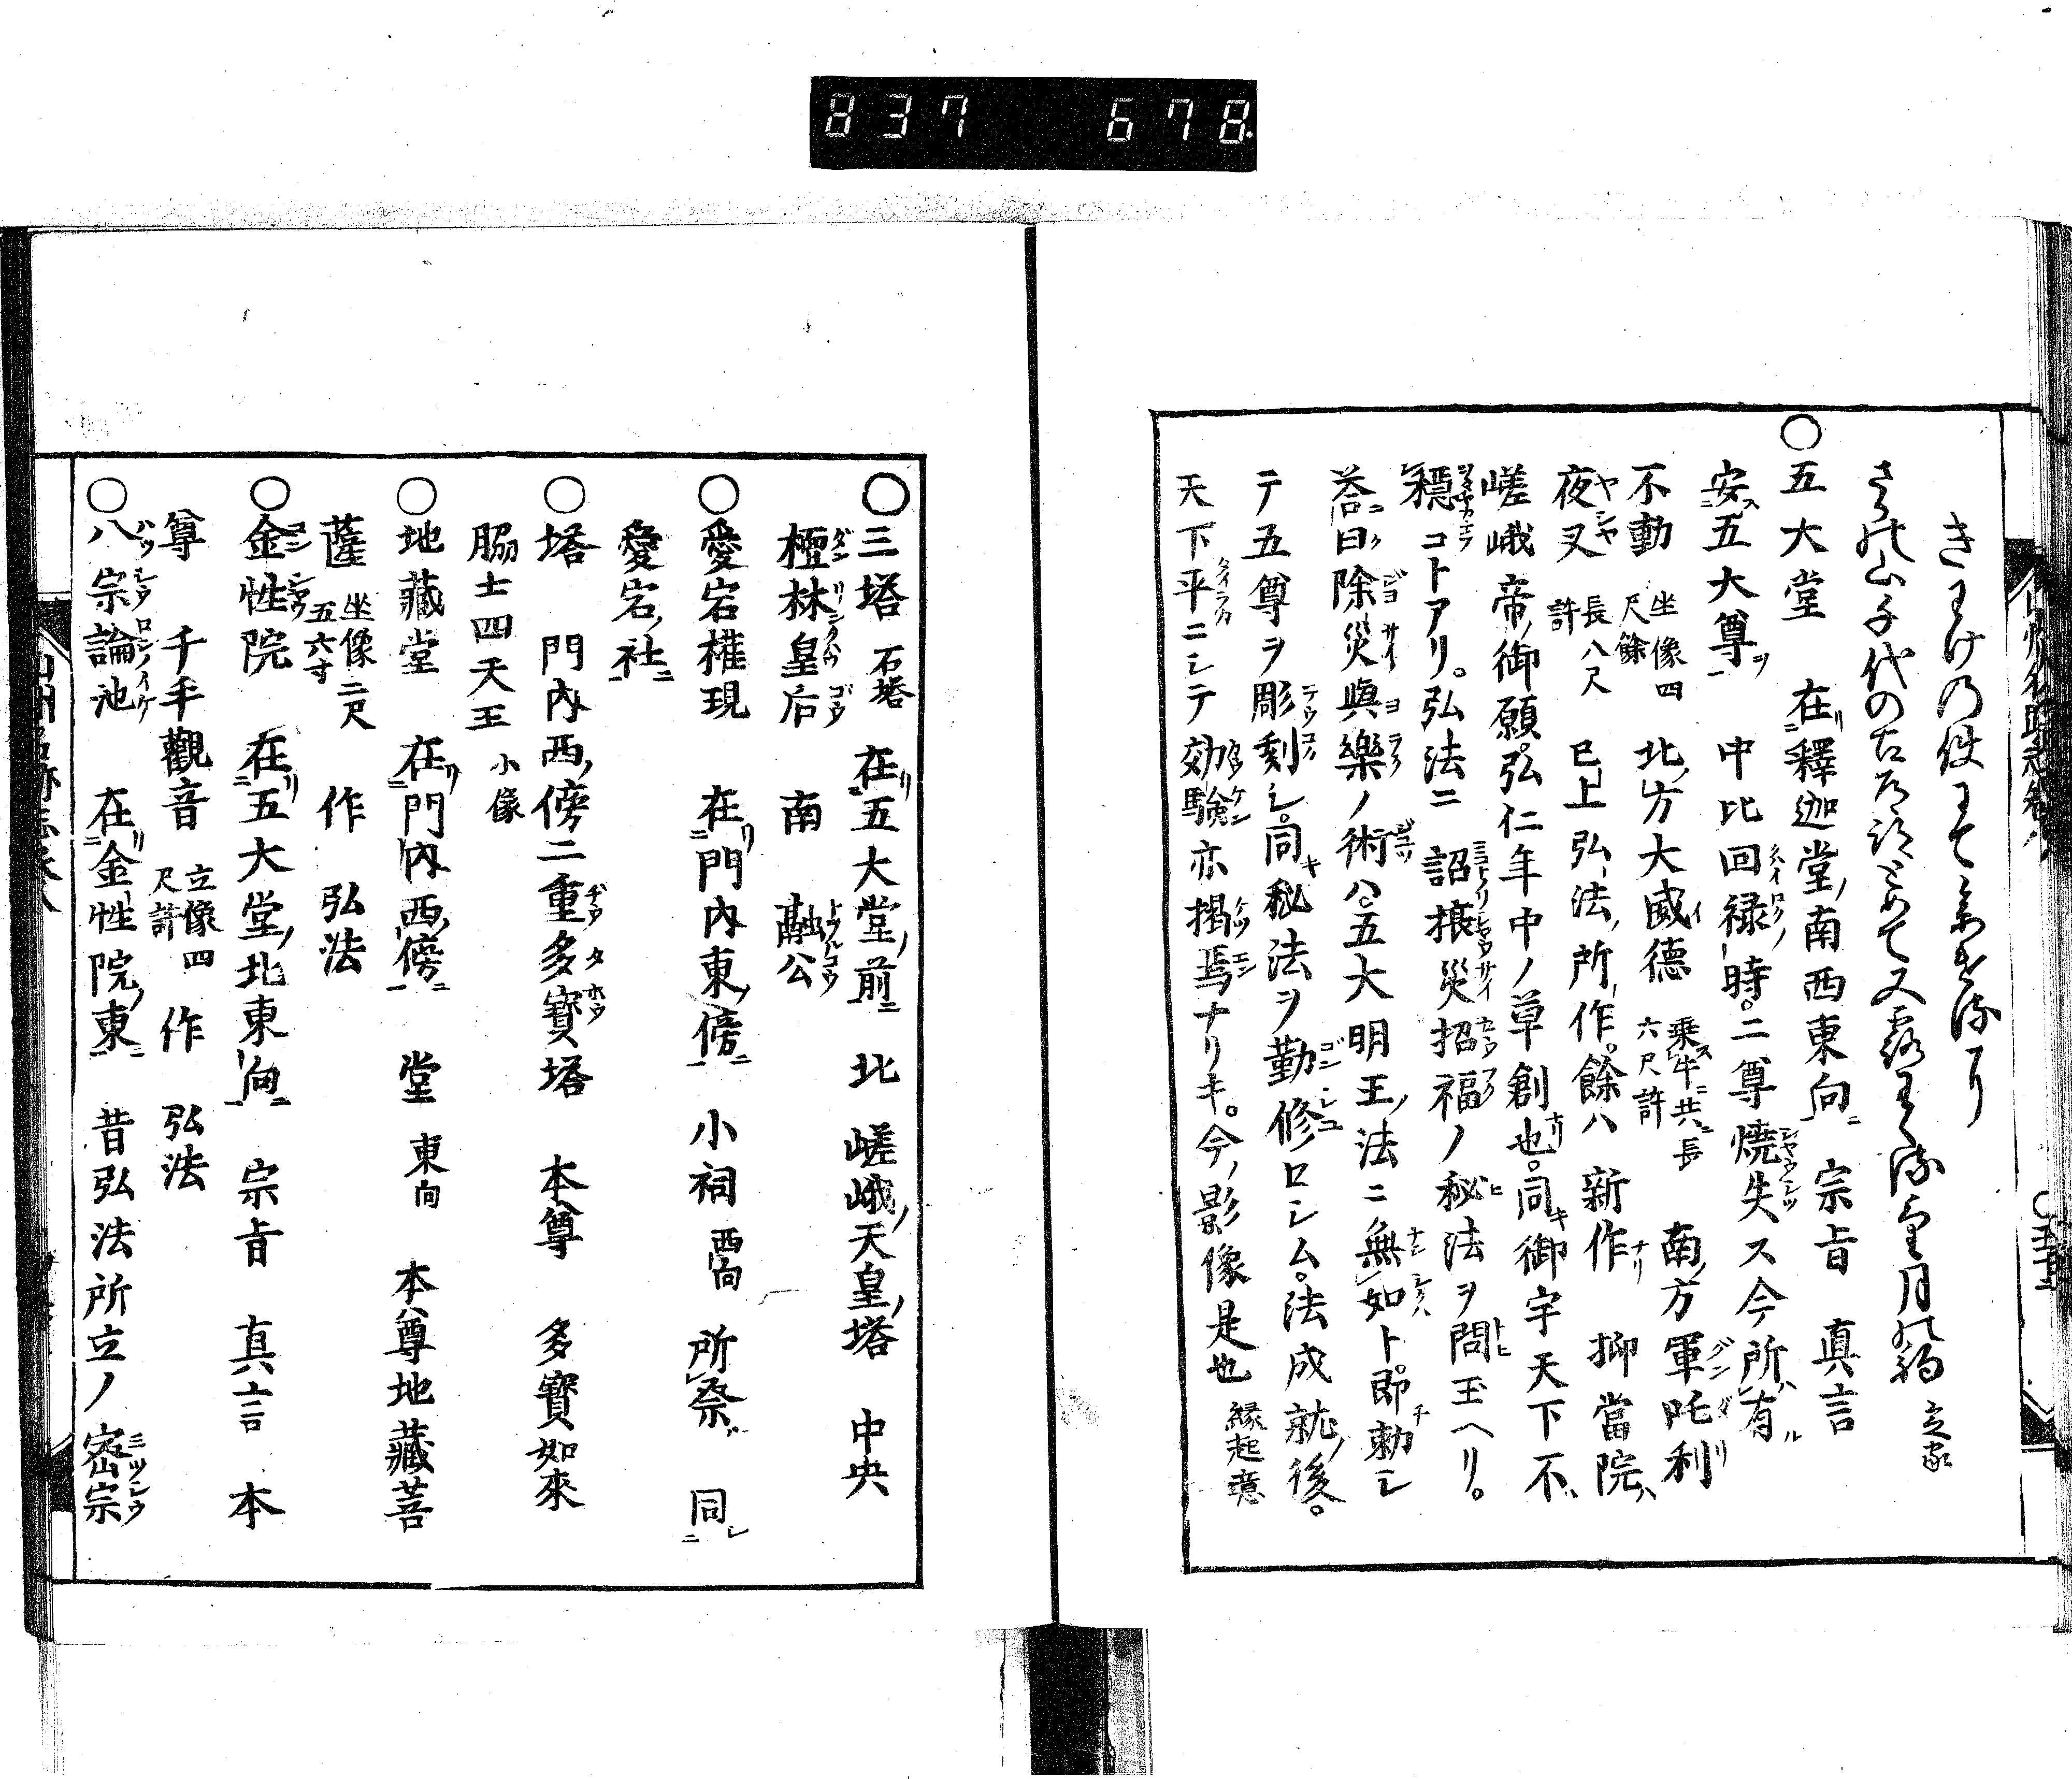 837 678
さがの山千代の古道跡とめて又露わくる望月の駒 定家
○五大堂 在釋迦堂ノ南西東向ニ 宗旨 真言
安五大尊ヲ 中比回禄ノ時。二尊燒失ス今所有ル
不動 坐像四尺餘 北ノ方大威德 乗牛ニ共ニ長六尺許 南ノ方軍吒利
夜叉 長八尺許 已上弘法ノ所作。餘ハ新作ナリ 抑當院ハ
嵯峨帝ノ御願。弘仁年中ノ草創也。同キ御宇天下不
穏コトアリ。弘法ニ 詔攘災招福ノ秘法ヲ問玉ヘリ。
答曰ク除災與樂ノ術ハ。五大明王ノ法ニ無如ト。即チ勅シ
テ五尊ヲ彫刻シ。同キ秘法ヲ勤修ロシム。法成就ノ後。
天下平ニシテ効驗亦掲焉ナリキ。今ノ影像是也 縁起意
○三塔 石塔 在五大堂ノ前ニ 北 嵯峨ノ天皇ノ塔 中央
檀林皇后 南 融公
○愛宕権現 在門内東ノ傍ニ 小祠 西向 所祭 同シ
愛宕ノ社ニ
○塔 門内西ノ傍二重多寳塔 本尊 多寳如來
脇士四天王 小像
○地藏堂 在門内西ノ傍ニ 堂 東向 本尊地藏菩
薩 坐像二尺五六寸 作 弘法
○金性院 在五大堂ノ北東向ニ 宗旨 真言 本
尊 千手觀音 立像四尺許 作 弘法
○八宗論池 在金性院ノ東ニ 昔弘法所立ノ密宗